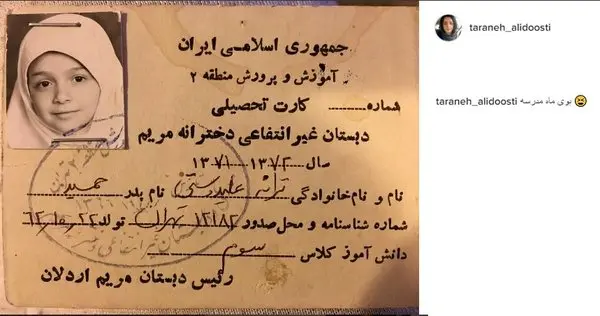 جمهوری اسلامی ایران
آموزش و پرورش منطقه ۲
شماره کارت تحصیلی
دبستان غیر انتفاعی دخترانه مریم
سال ۱۳۷۲ - ۱۳۷۱
نام و نام‌خانوادگی ترانه علیدوستی نام پدر حمید
شماره شناسنامه و محل صدور ۱۲۱۸۲ تهران تولد ۶۲،۱۰،۲۲
دانش آموز کلاس سوم
رئیس دبستان مریم اردلان
taraneh_alidoosti
taraneh_alidoosti بوی ماه مدرسه 😄